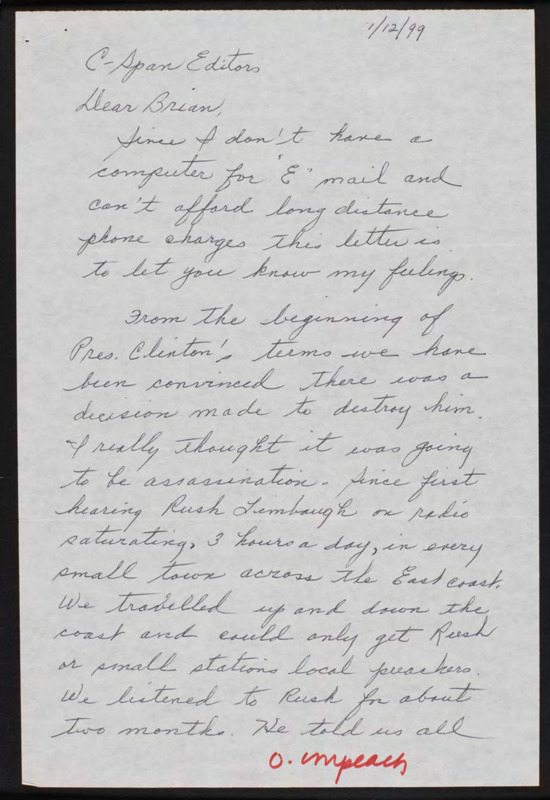 1/12/99
C-Span Editors
Dear Brian,
Since I don't have a
computer for "E" mail and
can't afford long distance
phone charges this letter is
to let you know my feelings.
From the beginning of
Pres. Clinton's terms we have
been convinced there was a
decision made to destroy him.
I really thought it was going
to be assassination. Since first
hearing Rush Limbaugh on radio
saturating, 3 hours a day, in every
small town across the East coast.
We travelled up and down the
coast and could only get Rush
or small stations local preachers.
We listened to Rush for about
two months. He told us all
O. impeach